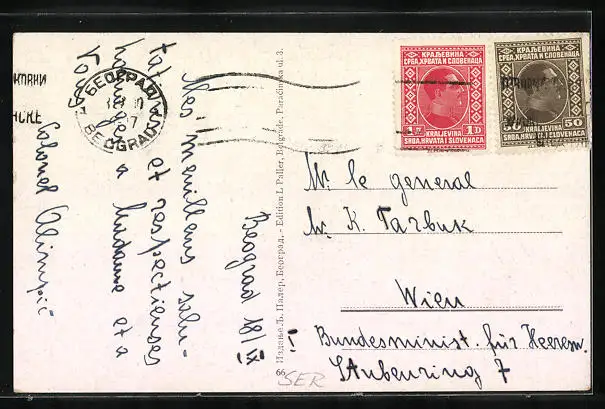 КРАЉЕВИНА
СРБА, ХРВАТА И СЛОВЕНАЦА
1D
KRALJEVINA
SRBA, HRVATA I SLOVENACA
КРАЉЕВИНА
СРБА, ХРВАТА И СЛОВЕНАЦА
50 50
KRALJEVINA
SRBA, HRVATA I SLOVENACA
БЕОГРАД 1
BEOGRAD 1
Mr le general
Mr. K. Тарбuk
Wien
I
Bundesminist. für Heerem.
Stubenring 7
Beograd 18/IX
Mes meilleurs salu-
tations et respectieuses
hommages a Madame et a
Vous
Colonel Olimpić
66 Издање Љ. Палер, Београд. - Edition L. Paller, Belgrade, Paradinka ul. 3.
SER